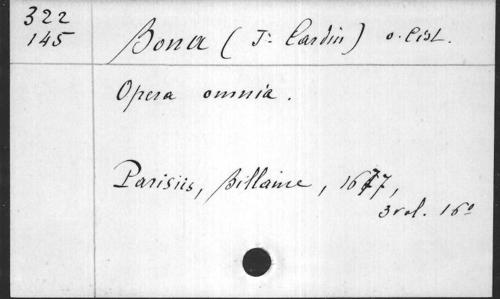 322
145
Bona (J: Cardin) o. Cist.
Opera omnia.
Parisiis, Billaine, 1677,
3 vol. 16º